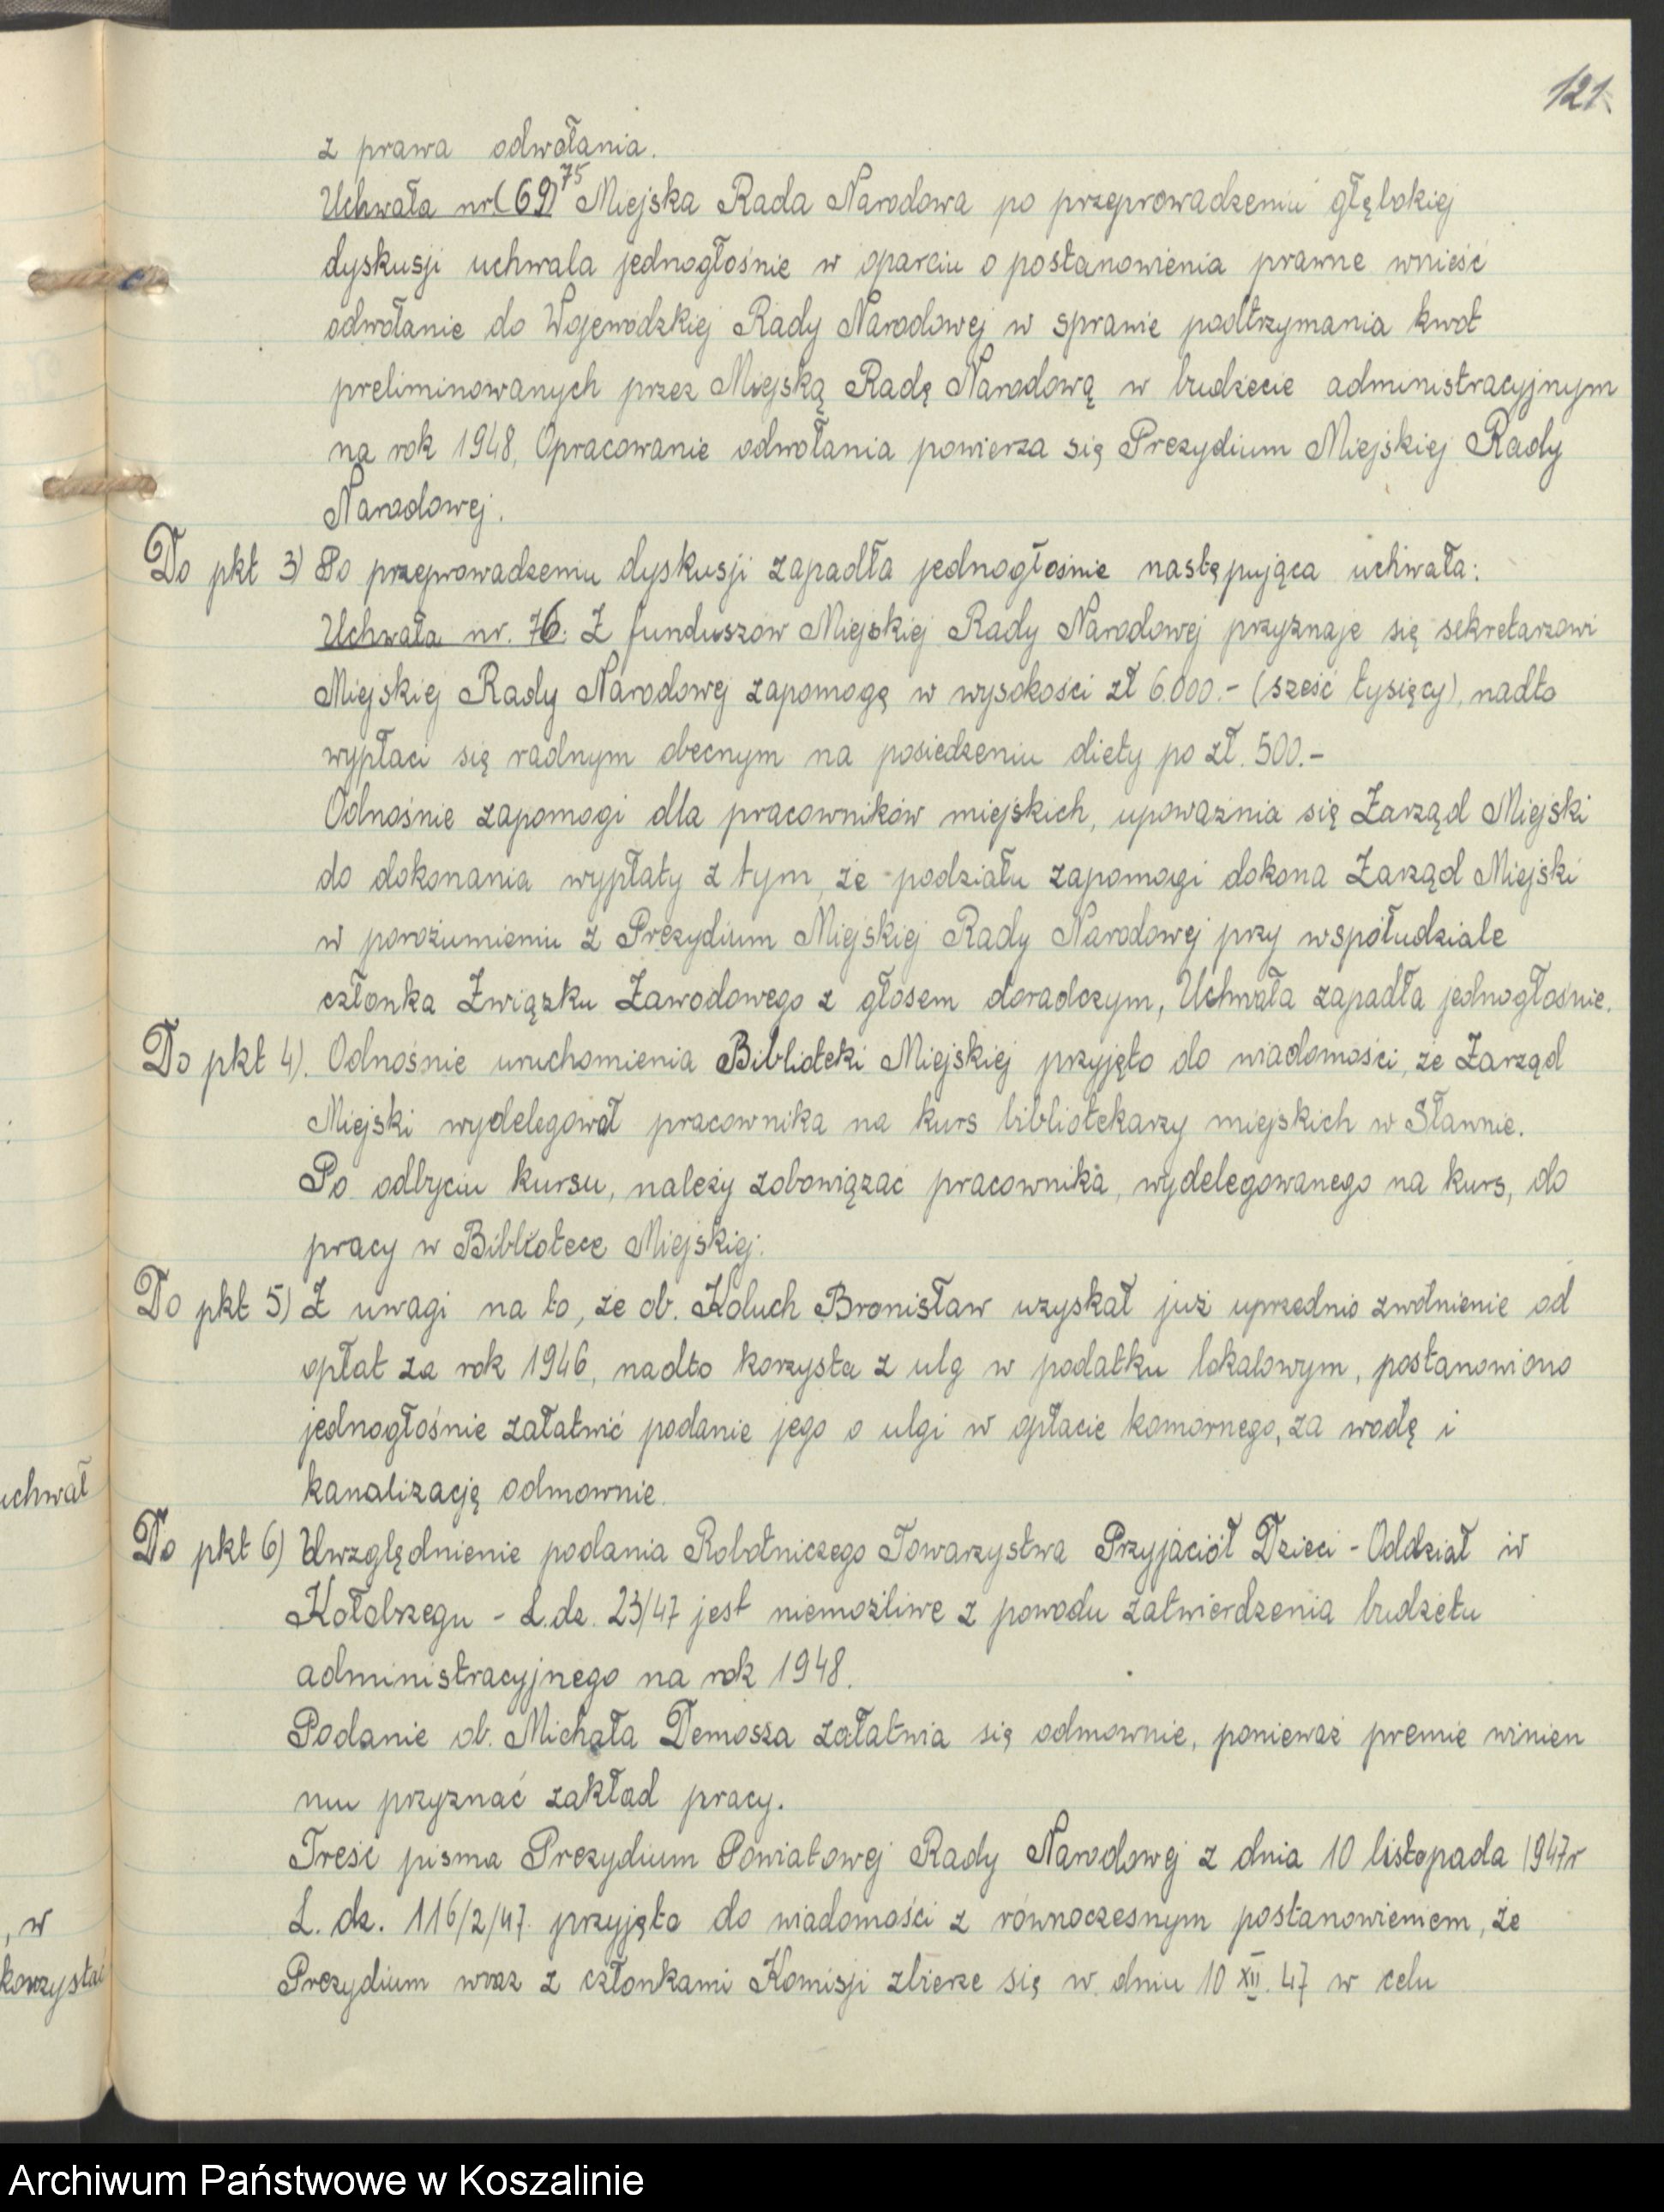 121.
z prawa odwołania.
Uchwała nr. (69) 75 Miejska Rada Narodowa po przeprowadzeniu głębokiej
dyskusji uchwala jednogłośnie w oparciu o postanowienia prawne wnieść
odwołanie do Wojewódzkiej Rady Narodowej w sprawie podtrzymania kwot
preliminowanych przez Miejską Radę Narodową w budżecie administracyjnym
na rok 1948, Opracowanie odwołania powierza się Prezydium Miejskiej Rady
Narodowej.
Do pkt 3) Po przeprowadzeniu dyskusji zapadła jednogłośnie następująca uchwała:
Uchwała nr. 76. Z funduszów Miejskiej Rady Narodowej przyznaje się sekretarzowi
Miejskiej Rady Narodowej zapomogę w wysokości zł 6.000.- (sześć tysięcy), nadto
wypłaci się radnym obecnym na posiedzeniu diety po zł. 500.-
Odnośnie zapomogi dla pracowników miejskich, upoważnia się Zarząd Miejski
do dokonania wypłaty z tym, że podziału zapomogi dokona Zarząd Miejski
w porozumieniu z Prezydium Miejskiej Rady Narodowej przy współudziale
członka Związku Zawodowego z głosem doradczym, Uchwała zapadła jednogłośnie.
Do pkt 4). Odnośnie uruchomienia Biblioteki Miejskiej przyjęto do wiadomości, że Zarząd
Miejski wydelegował pracownika na kurs bibliotekarzy miejskich w Sławnie.
Po odbyciu kursu, należy zobowiązać pracownika, wydelegowanego na kurs, do
pracy w Bibliotece Miejskiej.
Do pkt 5) Z uwagi na to, że ob. Koluch Bronisław uzyskał już uprzednio zwolnienie od
opłat za rok 1946, nadto korzysta z ulg w podatku lokalowym, postanowiono
jednogłośnie załatwić podanie jego o ulgi w opłacie komornego, za wodę i
kanalizację odmownie.
Do pkt 6) Uwzględnienie podania Robotniczego Towarzystwa Przyjaciół Dzieci - Oddział w
Kołobrzegu - L.dz. 23/47 jest niemożliwe z powodu zatwierdzenia budżetu
administracyjnego na rok 1948.
Podanie ob. Michała Demosza załatwia się odmownie, ponieważ premie winien
mu przyznać zakład pracy.
Treść pisma Prezydium Powiatowej Rady Narodowej z dnia 10 listopada 1947r
L. dz. 116/2/47. przyjęto do wiadomości z równoczesnym postanowieniem, że
Prezydium wraz z członkami Komisji zbierze się w dniu 10 XII. 47 w celu
uchwał
, w
korzystać
Archiwum Państwowe w Koszalinie